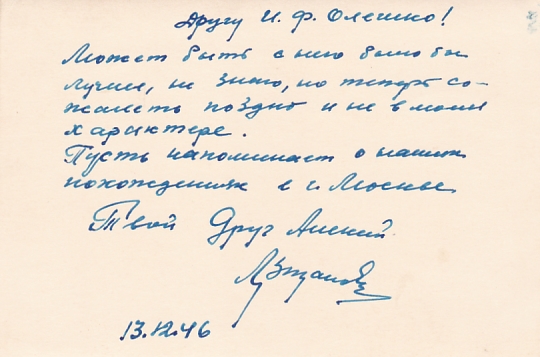 Другу И. Ф. Олейнко!
Может быть с ней было бы
лучше, не знаю, но теперь со-
жалеть поздно и не в моём
характере.
Пусть напоминает о наших
похождениях в г. Москве
Твой Друг
13.12.46